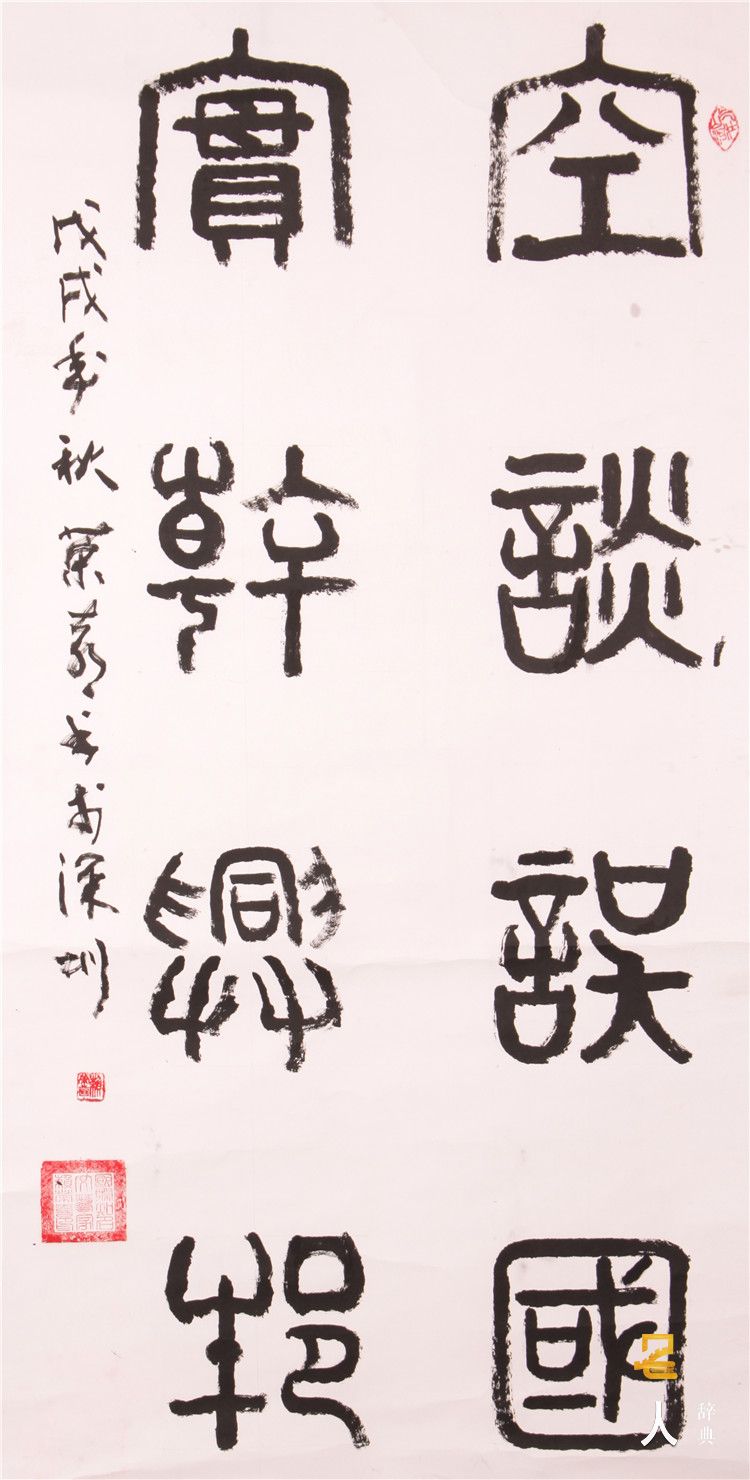 空談誤國
實幹興邦
戊戌年秋 葉 書於深圳
名人
辞典